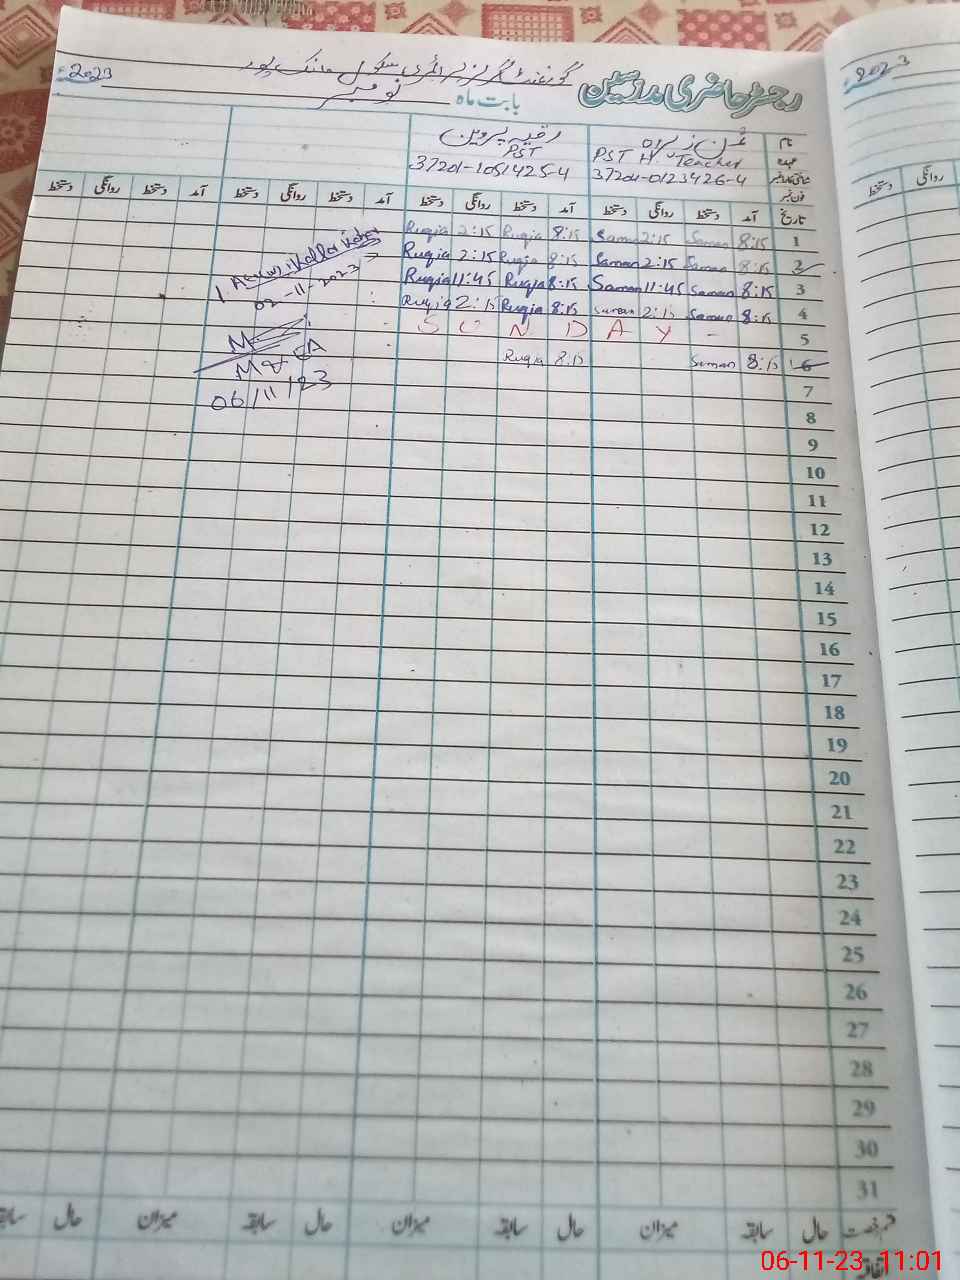 رجسٹر حاضری مدارسین گورنمنٹ گرلز پرائمری سکول مانک پور
بابت ماہ نومبر 2023ء
2023
نام ثمن زہراہ رقیہ پروین
عہدہ PST H Teacher PST
37201-0123426-4 37201-1051425-4
فون نمبر
تاریخ آمد دستخط روانگی دستخط آمد دستخط روانگی دستخط آمد دستخط روانگی دستخط آمد دستخط روانگی دستخط
روانگی دستخط
1 8:15 Saman 2:15 Saman 8:15 Ruqia 2:15 Ruqia
2 8:15 Saman 2:15 Saman 8:15 Ruqia 2:15 Ruqia
3 8:15 Saman 11:45 Saman 8:15 Ruqia 11:45 Ruqia
4 8:15 Saman 2:15 Saman 8:15 Ruqia 2:15 Ruqia
5 S U N D A Y -
6 8:15 Saman 8:15 Ruqia
02-11-2023
MEA
06/11/23
7
8
9
10
11
12
13
14
15
16
17
18
19
20
21
22
23
24
25
26
27
28
29
30
31
قسم رخصت حال سابقہ میزان حال سابقہ میزان حال سابقہ میزان حال سابقہ
اتفاقیہ
06-11-23 11:01